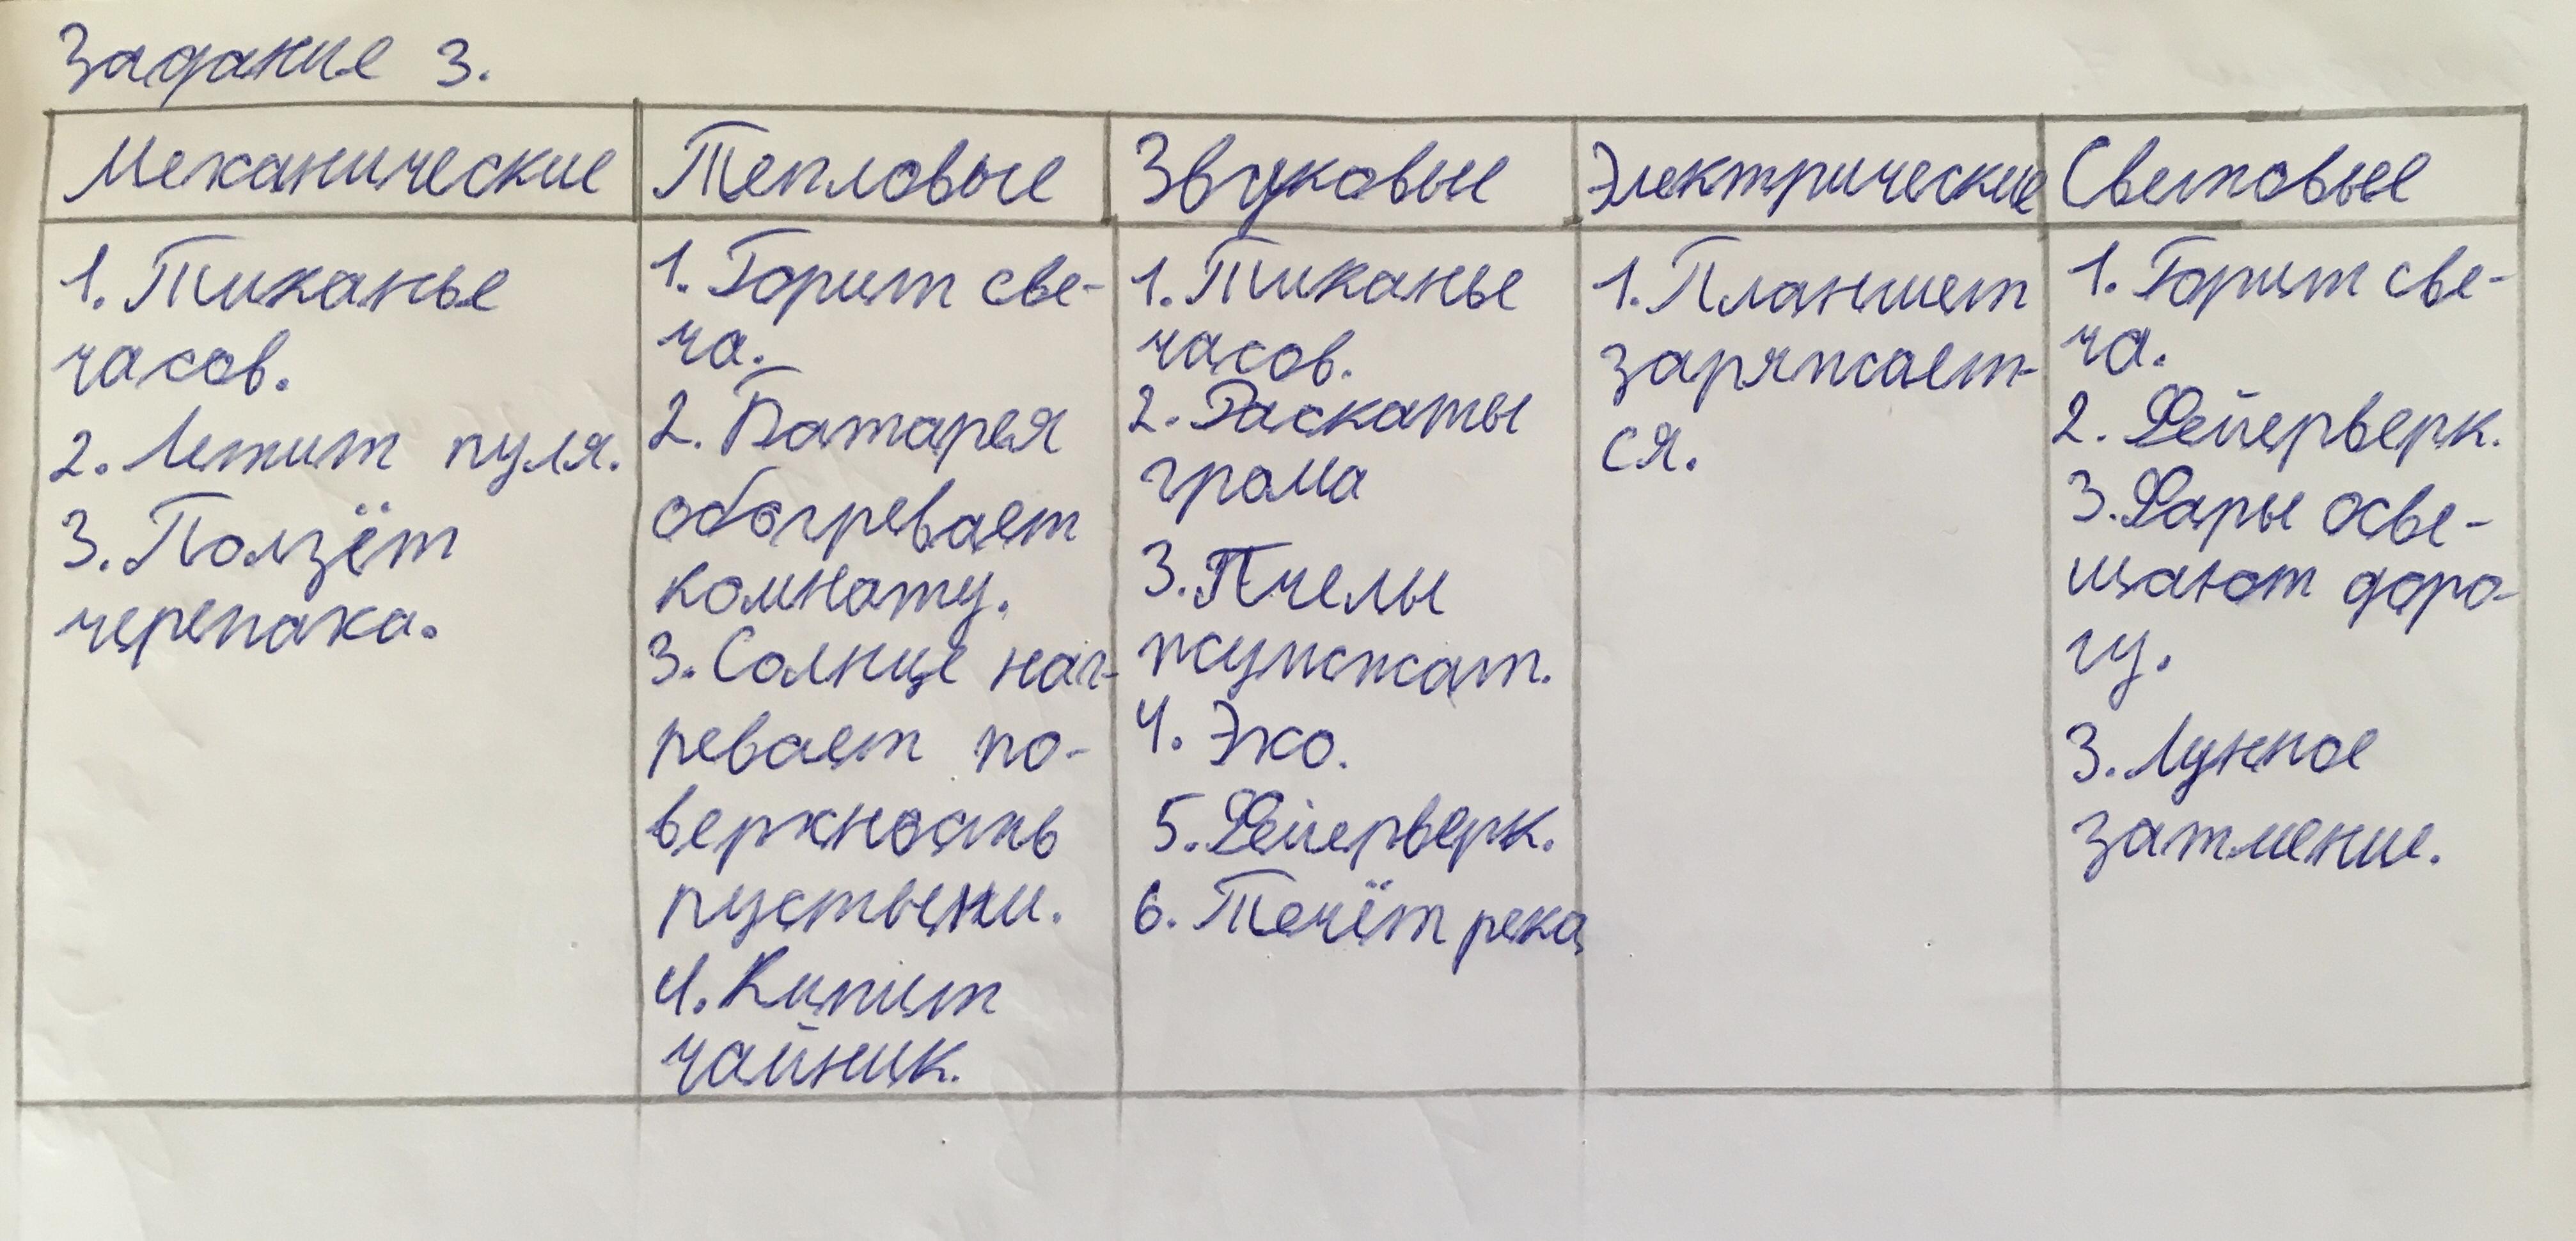 Задание 3.
Механические
Тепловые
Звуковые
Электрические
Световые
1. Тиканье
часов.
2. Летит пуля.
3. Ползёт
черепаха.
1. Горит све-
ча.
2. Батарея
обогревает
комнату.
3. Солнце наг-
ревает по-
верхность
пустыни.
4. Кипит
чайник.
1. Тиканье
часов.
2. Раскаты
грома
3. Пчелы
жужжат.
4. Эхо.
5. Фейерверк.
6. Течёт река
1. Планшет
заряжает-
ся.
1. Горит све-
ча.
2. Фейерверк.
3. Фары осве-
щают доро-
гу.
3. Лунное
затмение.